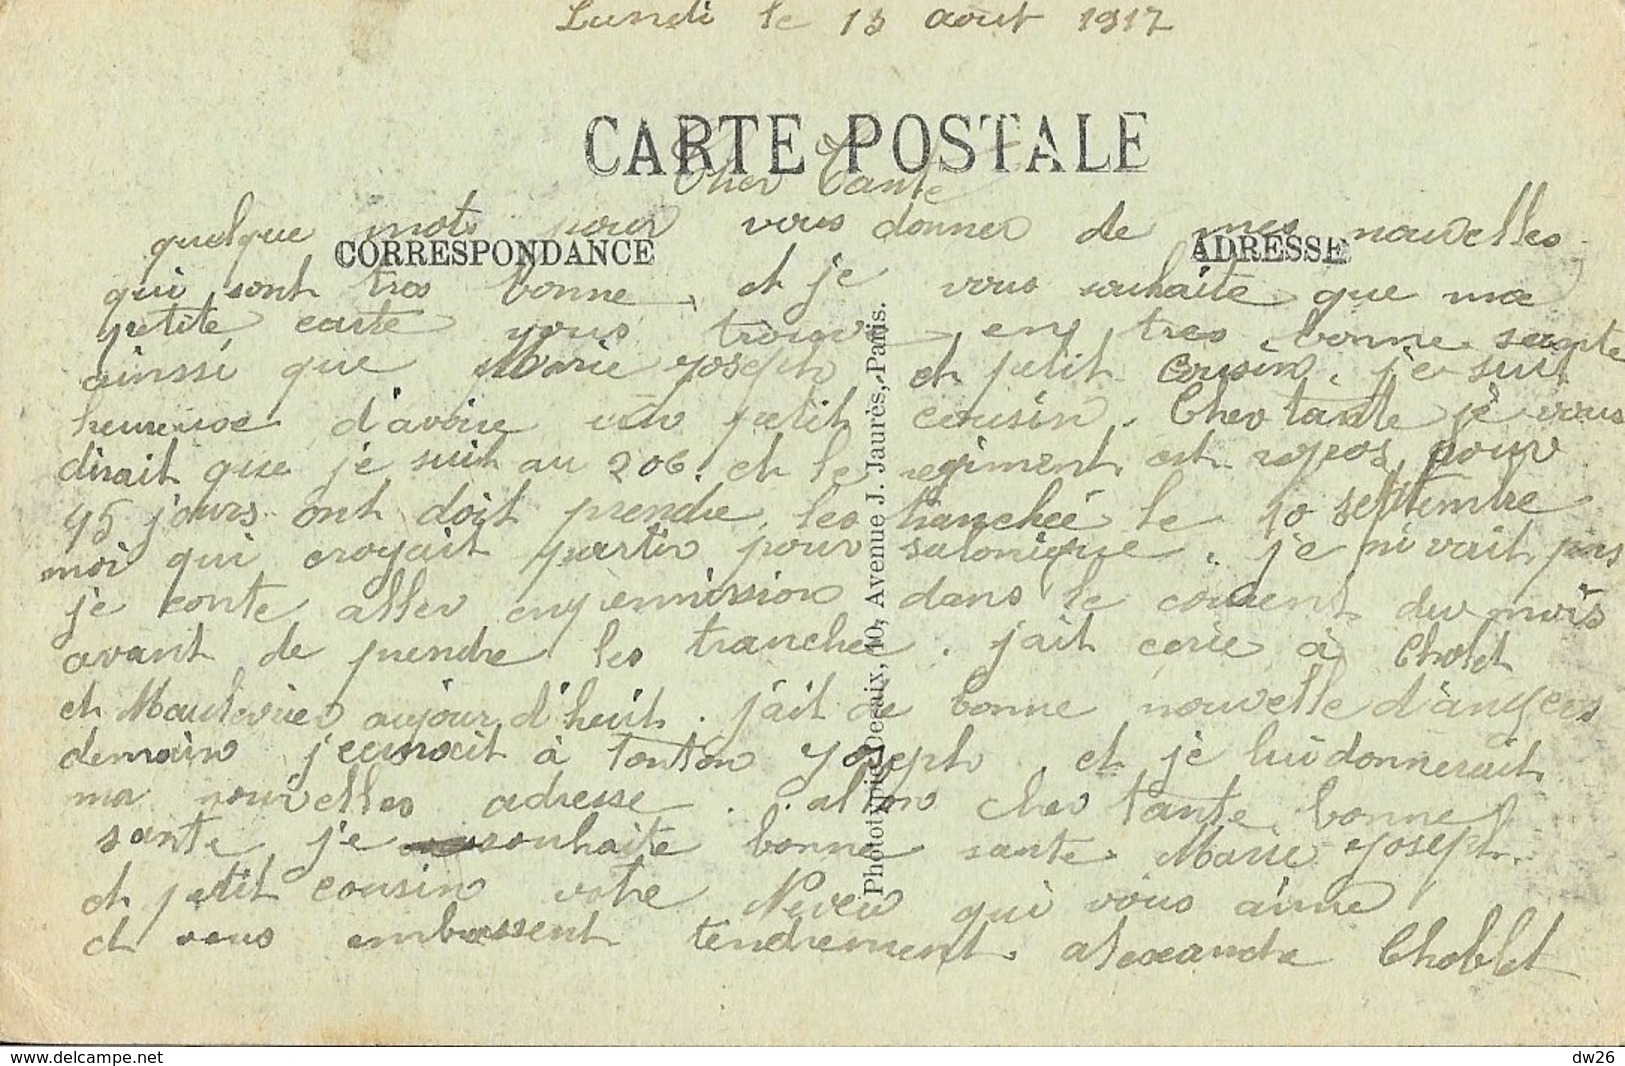 Lundi le 13 aout 1917
CARTE POSTALE
Cher Tante
quelque mots pour vous donner de mes nouvelles
CORRESPONDANCE ADRESSE
qui sont tres bonne, et je vous souhaite que ma
petite carte vous trouve en tres bonne sante
ainssi que Marie Joseph et petit cousin, je suit
heureuse d'avoire un petit cousin. Cher tante je vous
dirait que je suit au 206. et le regiment est repos pour
45 jours ont doit prendre les tranchée le 10 septembre
moi qui croyait partir pour salonique. je ni vait pas
je conte aller enpermission dans le courent du mois
avant de prendre les tranchée. jait ecrie à Cholet
et Maulevrier aujour d'huit. jait de bonne nouvelle d'angers
demain jecrirait à tonton Joseph et je lui donnerait
ma nouvelles adresse. allon cher tante bonne
sante je souhaite bonne sante Marie Joseph.
et petit cousin votre Neveu qui vous aime
et vous embrassent tendrement. alexandre Choblet
Phototypie Desaix, 40, Avenue J. Jaurès, Paris.
www.delcampe.net
dw26